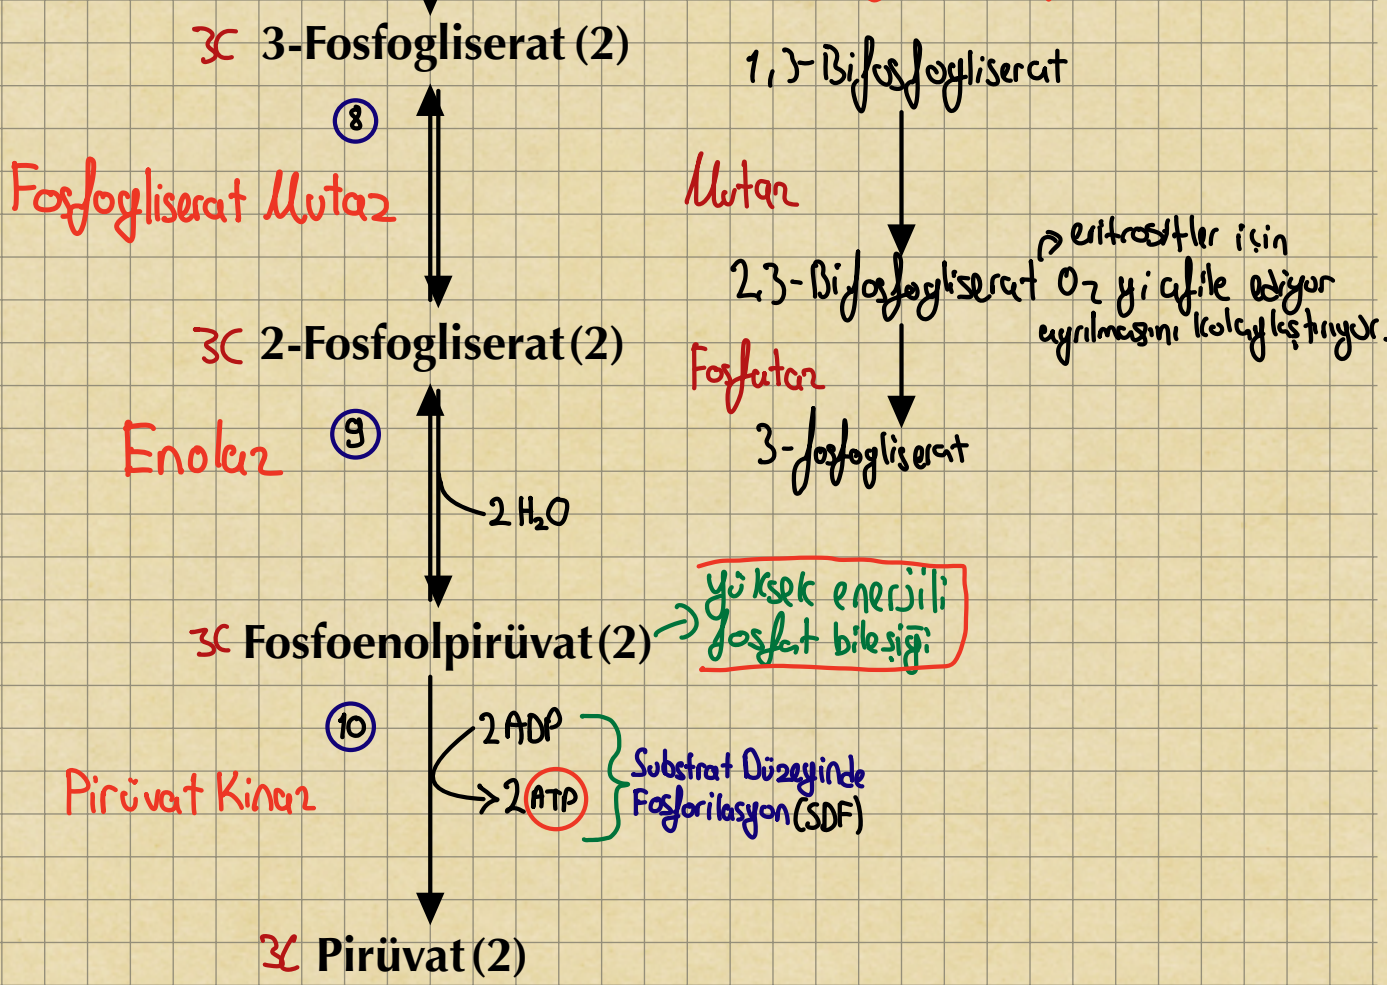 3C 3-Fosfogliserat (2)
8
Fosfogliserat Mutaz
3C 2-Fosfogliserat (2)
9
Enolaz
2 H₂O
3C Fosfoenolpirüvat (2)
yüksek enerjili
fosfat bileşiği
10
2 ADP
Pirüvat Kinaz
2 ATP
Substrat Düzeyinde
Fosforilasyon (SDF)
3C Pirüvat (2)
1,3-Bifosfogliserat
Mutaz
2,3-Bifosfogliserat
eritrositler için
O₂ yi afile ediyor
ayrılmasını kolaylaştırıyor.
Fosfataz
3-fosfogliserat